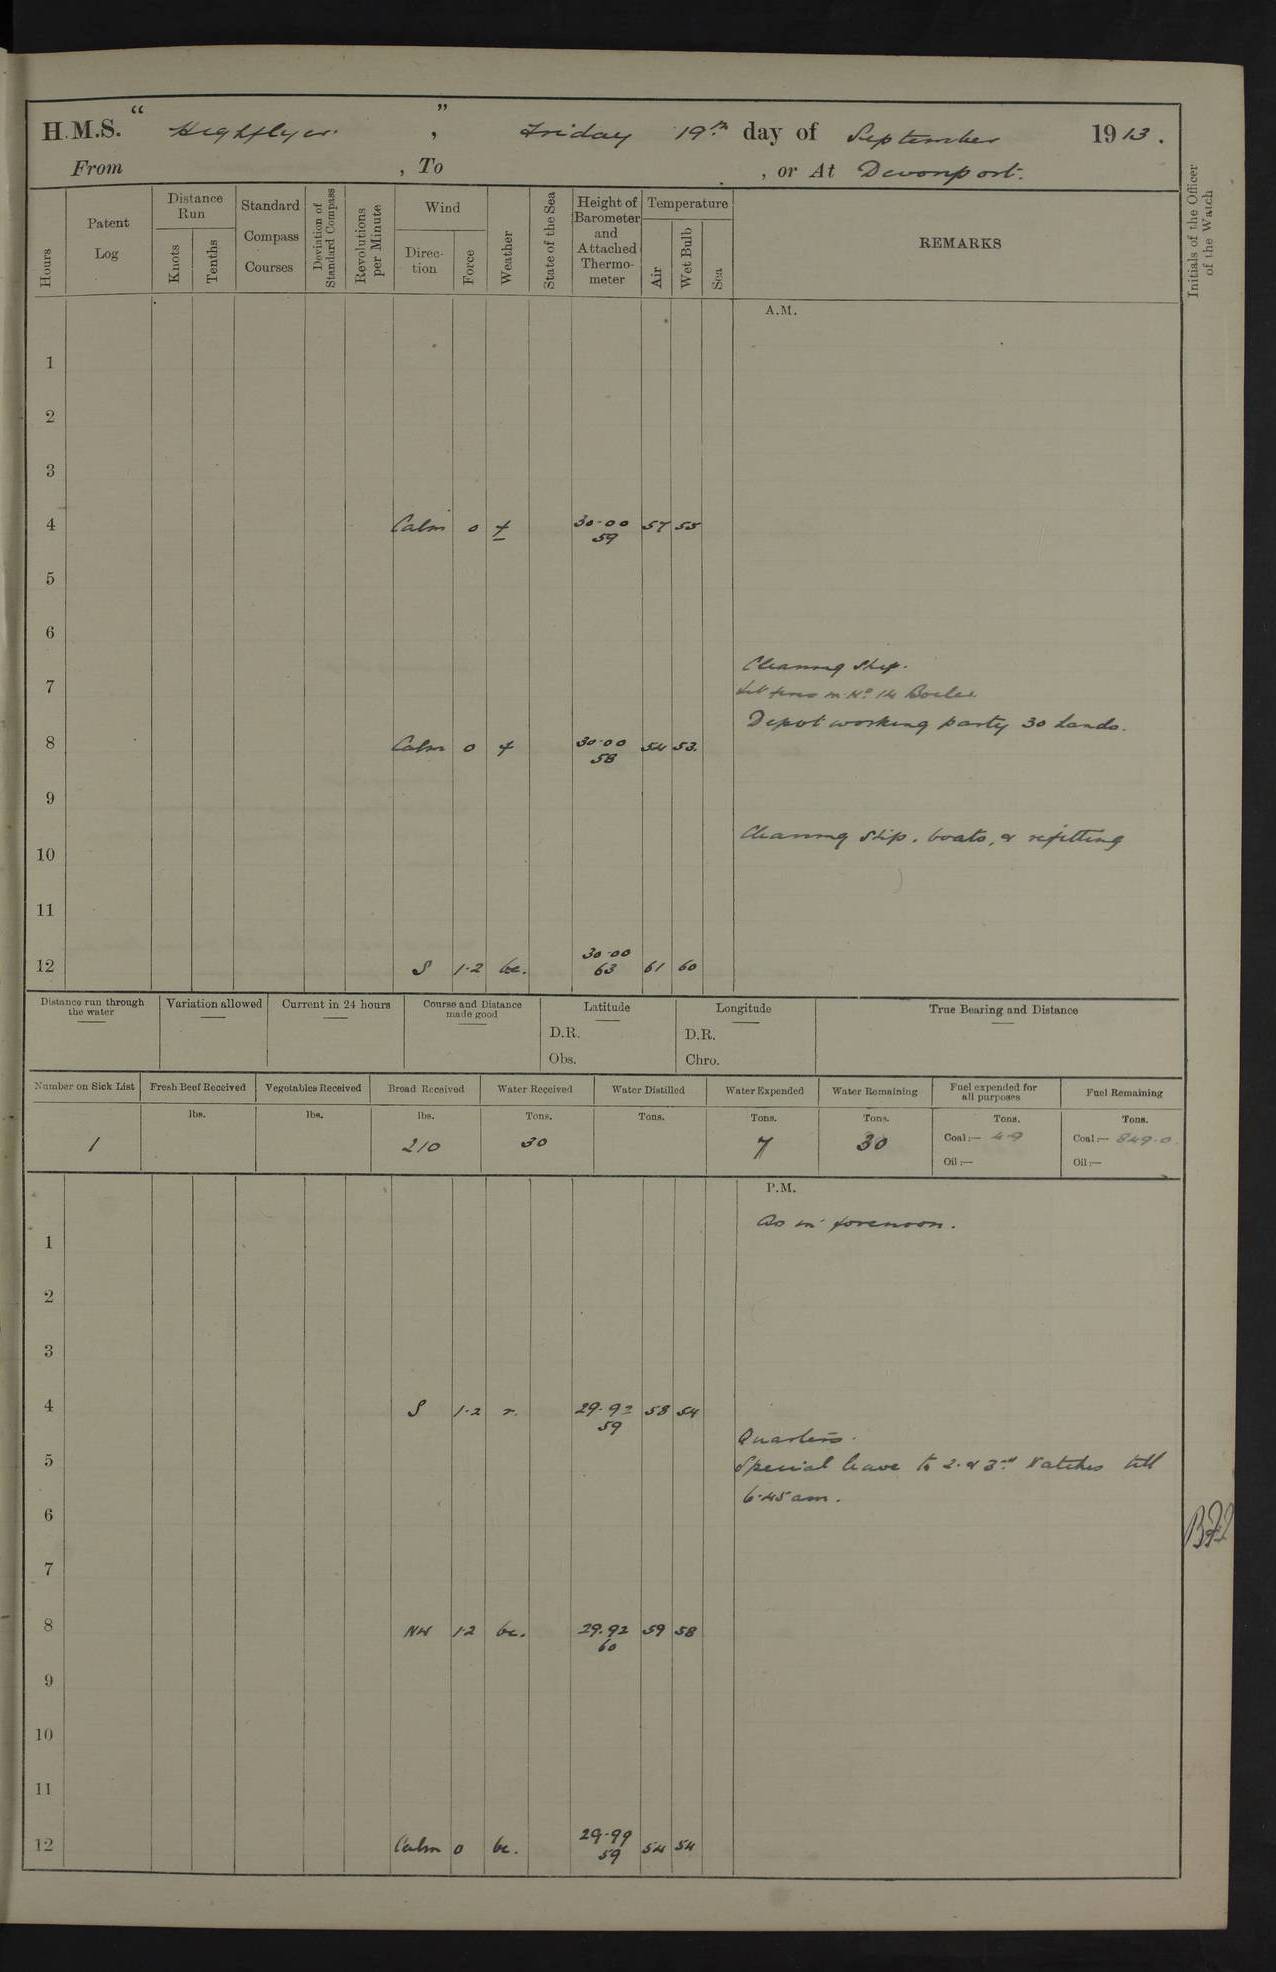 H.M.S. “ Highflyer. ” , Friday 19th day of September 1913.
From , To , or At Devonport.
Hours
Patent Log
Distance Run
Knots
Tenths
Standard Compass Courses
Deviation of Standard Compass
Revolutions per Minute
Wind
Direction
Force
Weather
State of the Sea
Height of Barometer and Attached Thermometer
Temperature
Air
Wet Bulb
Sea
REMARKS
Initials of the Officer of the Watch
A.M.
1
2
3
4 Calm 0 f 30.00 59 57 55
5
6
Cleaning Ship.
7 Lit fires in No 14 Boiler
Depot working party 30 hands.
8 Calm 0 f 30.00 58 54 53.
9
Cleaning Ship, boats, & refitting
10
11
12 S 1.2 bc. 30.00 63 61 60
Distance run through the water
Variation allowed
Current in 24 hours
Course and Distance made good
Latitude
D.R.
Obs.
Longitude
D.R.
Chro.
True Bearing and Distance
Number on Sick List
Fresh Beef Received
Vegetables Received
Bread Received
Water Received
Water Distilled
Water Expended
Water Remaining
Fuel expended for all purposes
Fuel Remaining
lbs. lbs. lbs. Tons. Tons. Tons. Tons. Tons. Tons.
1 210 30 7 30 Coal:— 4.9 Coal:— 849.0
Oil:— Oil:—
P.M.
As in forenoon.
1
2
3
4 S 1.2 r. 29.92 59 58 54
Quarters.
5 Special leave to 2. & 3rd Watches till
6.45 am.
6
7
8 NW 1.2 bc. 29.92 60 59 58
9
10
11
12 Calm 0 bc. 29.99 59 54 54